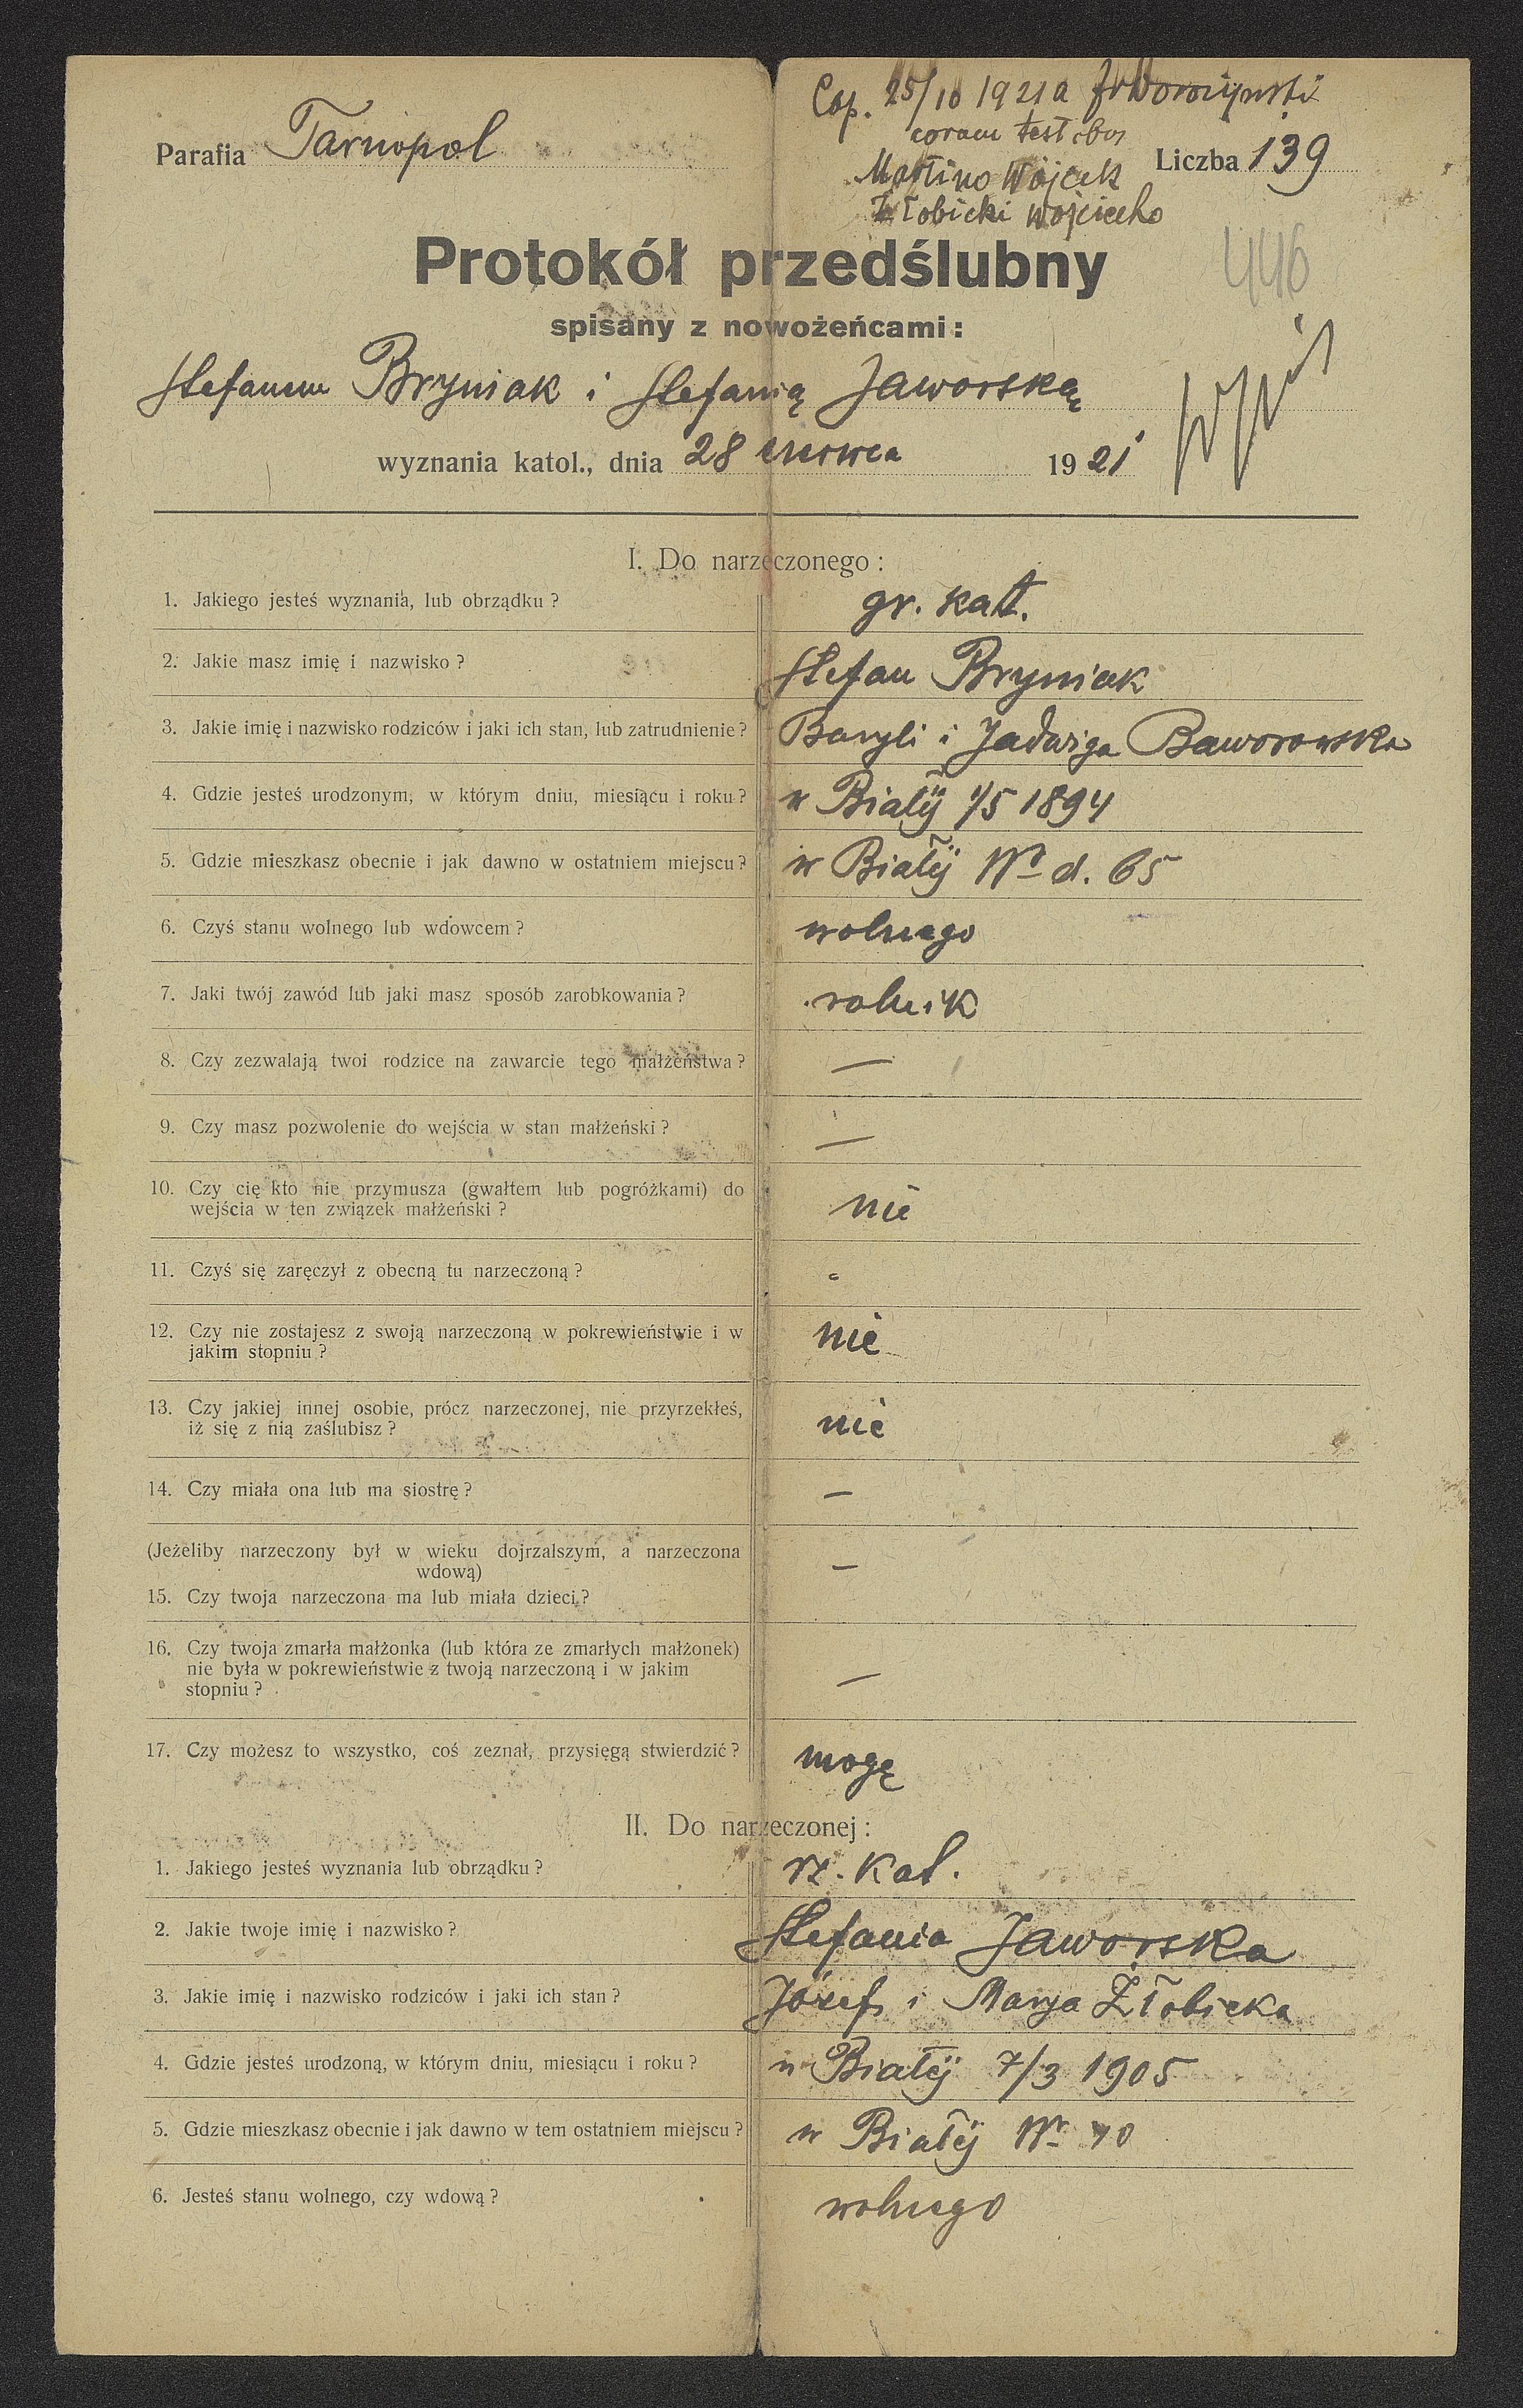 Cop. 25/10 1921 a
coram testibus
Parafia Tarnopol
Liczba 139
Martino Wójcik
Złobicki Wojciecho
Protokół przedślubny
446
spisany z nowożeńcami:
Stefanem Bryniak i Stefanią Jaworską
wyznania katol., dnia 28 czerwca 1921
I. Do narzeczonego:
1. Jakiego jesteś wyznania, lub obrządku? gr. kat.
2. Jakie masz imię i nazwisko? Stefan Bryniak
3. Jakie imię i nazwisko rodziców i jaki ich stan, lub zatrudnienie? Bazyli i Jadwiga Baworowska
4. Gdzie jesteś urodzonym, w którym dniu, miesiącu i roku? w Białÿ 1/5 1894
5. Gdzie mieszkasz obecnie i jak dawno w ostatniem miejscu? w Białÿ Nr d. 65
6. Czyś stanu wolnego lub wdowcem? wolnego
7. Jaki twój zawód lub jaki masz sposób zarobkowania? rolnik
8. Czy zezwalają twoi rodzice na zawarcie tego małżeństwa? —
9. Czy masz pozwolenie do wejścia w stan małżeński? —
10. Czy cię kto nie przymusza (gwałtem lub pogróżkami) do
wejścia w ten związek małżeński? nie
11. Czyś się zaręczył z obecną tu narzeczoną?
12. Czy nie zostajesz z swoją narzeczoną w pokrewieństwie i w
jakim stopniu? nie
13. Czy jakiej innej osobie, prócz narzeczonej, nie przyrzekłeś,
iż się z nią zaślubisz? nie
14. Czy miała ona lub ma siostrę? —
(Jeżeliby narzeczony był w wieku dojrzalszym, a narzeczona
wdową) —
15. Czy twoja narzeczona ma lub miała dzieci?
16. Czy twoja zmarła małżonka (lub która ze zmarłych małżonek)
nie była w pokrewieństwie z twoją narzeczoną i w jakim
stopniu? —
17. Czy możesz to wszystko, coś zeznał, przysięgą stwierdzić? mogę
II. Do narzeczonej:
1. Jakiego jesteś wyznania lub obrządku? rz. kat.
2. Jakie twoje imię i nazwisko? Stefania Jaworska
3. Jakie imię i nazwisko rodziców i jaki ich stan? Józef i Marya Złobicka
4. Gdzie jesteś urodzoną, w którym dniu, miesiącu i roku? w Białÿ 7/3 1905
5. Gdzie mieszkasz obecnie i jak dawno w tem ostatniem miejscu? w Białÿ Nr 40
6. Jesteś stanu wolnego, czy wdową? wolnego